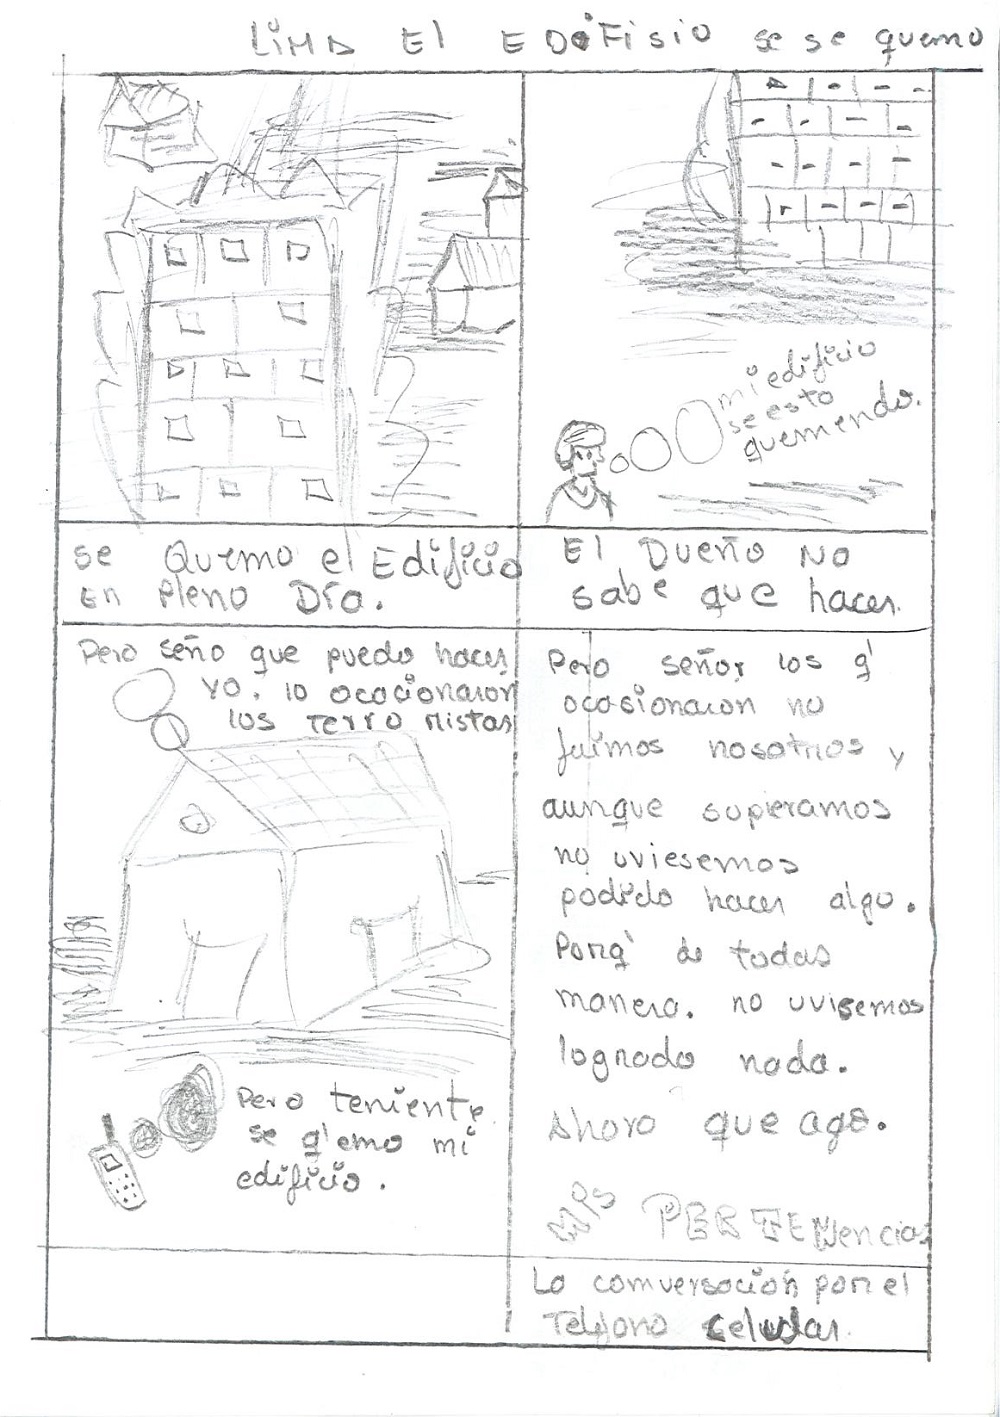 LIMA El EDiFisio se se quemo
mi edificio
se esta
quemendo.
se Quemo el Edificio
En Pleno Día.
El Dueño No
sabe que hacer.
Pero seño que puedo hacer
yo. lo ocacionaron
los Terro ristas
Pero teniente
se q'emo mi
edificio.
Pero señor los q'
ocasionaron no
fuimos nosotros y
aunque supieramos
no uviesemos
podido hacer algo.
Porq' de todas
manera. no uvisemos
logrado nada.
Ahora que ago.
MIS PERTENencias
La comversación por el
Telefono celular.